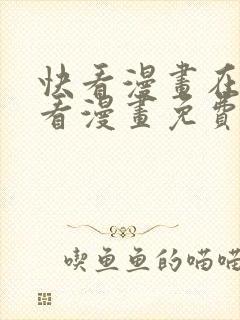 快看漫畫在
看漫畫免費
喫魚魚的喵喵